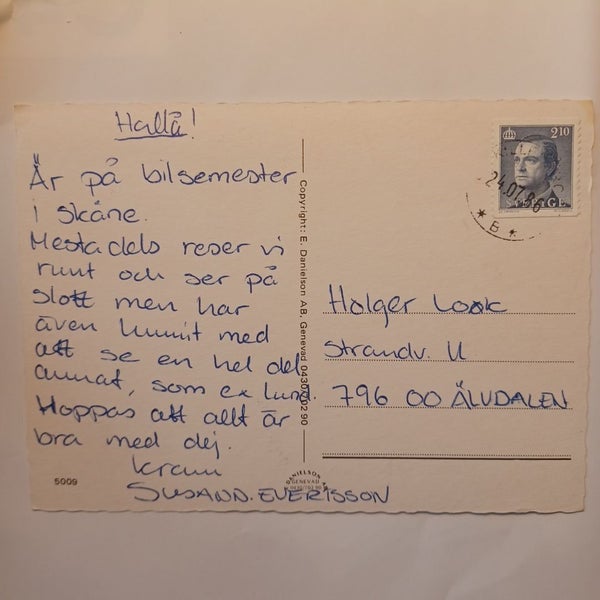 Hallå!
Är på bilsemester
i skåne.
Mestadels reser vi
runt och ser på
slott men har
även hunnit med
att se en hel del
annat, som ex lund.
Hoppas att allt är
bra med dej.
kram
SUSANN.EVERTSSON
5009
Copyright: E. Danielson AB, Genevad 0430/702 90
DANIELSON
GENEVAD
2 10
SVERIGE
24.07.86
* B *
Holger Look
Strandv. 11
796 00 ÄLVDALEN